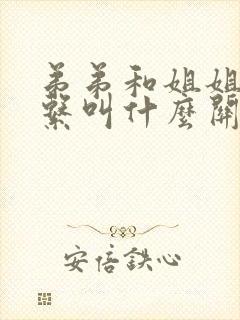 弟弟和姐姐
繫叫什麼關
安倍鉄心